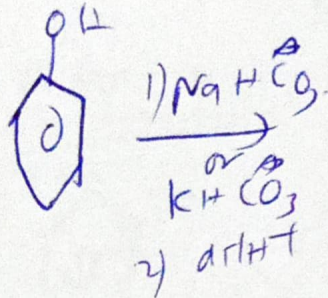 OH
1) NaHCO3
or
KHCO3
2) dil H+